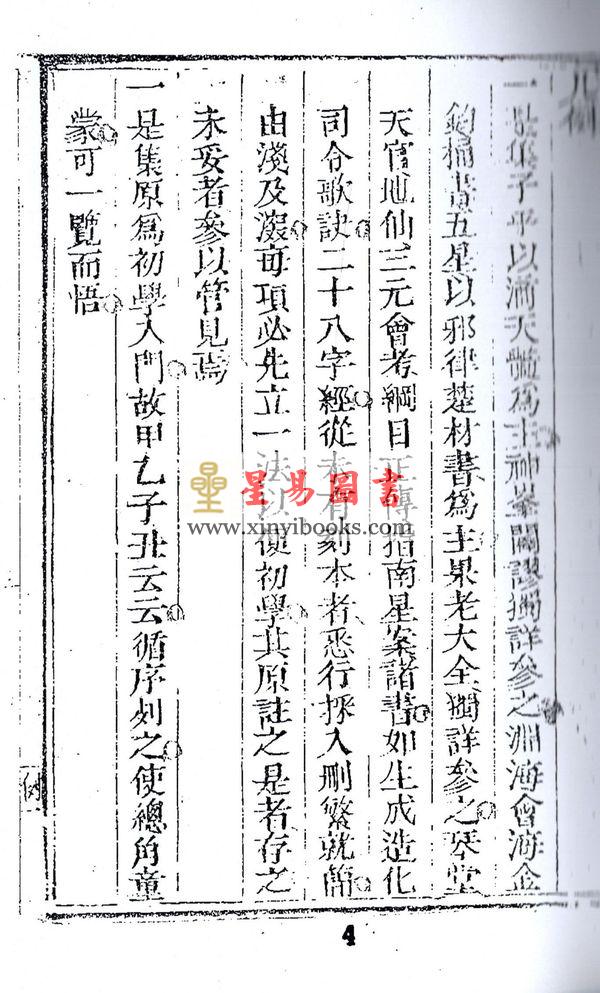 凡例
一是集子平以滴天髓為主神峯闢謬獨詳參之淵海會海金
鈎桶書五星以耶律楚材書為主果老大全獨詳參之琴堂
天官地仙三元會考綱目正傳指南星案諸書如生成造化
司令歌訣二十八字經從未有刻本者悉行採入刪繁就簡
由淺及深每項必先立一法以便初學其原註之是者存之
未妥者參以管見焉
一是集原為初學入門故甲乙子丑云云循序列之使總角童
蒙可一覽而悟
例
星易圖書
www.xinyibooks.com
4